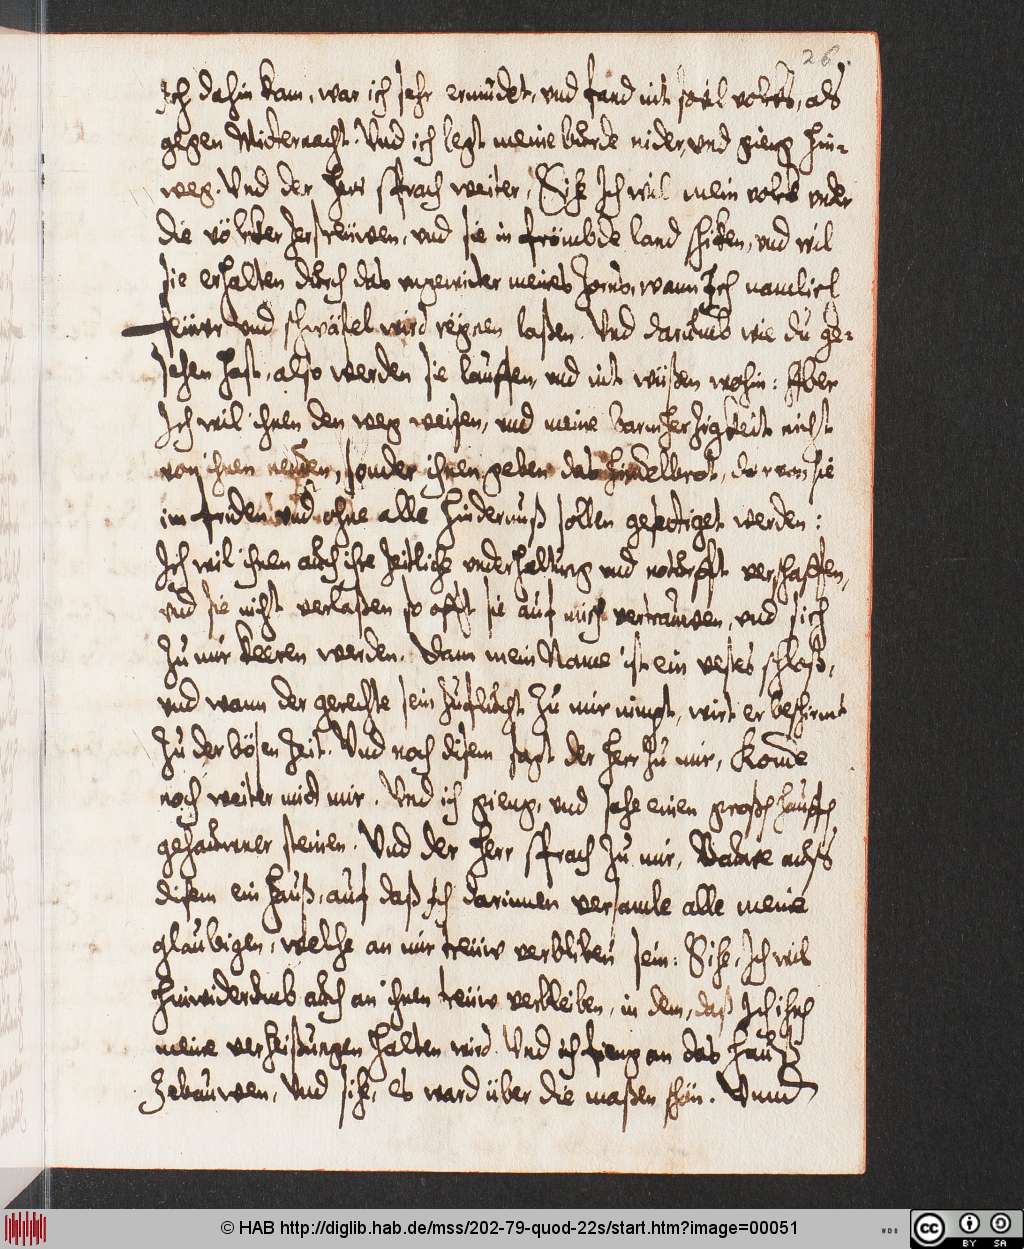 26.
Ich dahin kam, war ich sehr ermüdet, vnd fand nit souil volks, als
gegen Miternacht. Vnd ich legt meine bürde nider, vnd gieng hin-
weg. Vnd der Herr sprach weiter, Sihe Ich wil mein volk vnder
die völker zerstreüwen, vnd sie in frömbde land schiken, vnd wil
sie erhalten durch das vngewiter meines Zorns, wann Ich namlich
feüwr vnd schwäfel wird regnen laßen. Vnd darumb wie du ge-
sehen hast, also werden sie lauffen, vnd nit wüßen wohin: Aber
Ich wil ihnen den weg weisen, vnd meine barmherzigkeit nicht
von ihnen wenden, sonder ihnen geben das himelbrot, da von sie
im friden vnd ohne alle hindernuß sollen gesettiget werden:
Ich wil ihnen auch ihre zeitliche vnderhaltung vnd noturfft verschaffen,
vnd sie nicht verlaßen so offt sie auf mich vertrauwen, vnd sich
zu mir keeren werden. Dann mein Name ist ein vestes schloß,
vnd wann der gerechte sein zuflucht zu mir nimpt, wirt er beschirmt
zu der bösen zeit. Vnd nach disem sagt der Herr zu mir, Komme
noch weiter mit mir. Vnd ich gieng, vnd sahe einen großen hauffen
gehauwner steinen. Vnd der Herr sprach zu mir, Bauwe auß
disem ein Hauß, auf daß Ich darinnen versamle alle meine
glaubigen, welche an mir treüw verbliben sein: Sihe, Ich wil
hinwiderumb auch an ihnen treüw verbleiben, in dem, daß Ich ihnen
meine verheißungen halten wird. Vnd ich fieng an das Hauß
zebauwen, vnd sihe, es ward über die maßen schön. Vnnd
© HAB http://diglib.hab.de/mss/202-79-quod-22s/start.htm?image=00051
WDB
CC
BY SA